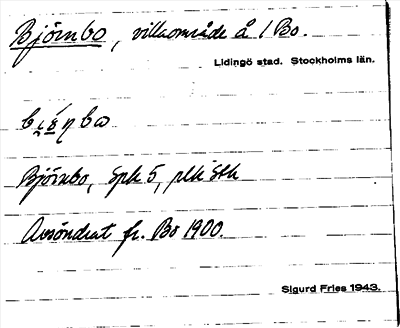 Björnbo, villaområde å 1 Bo.
Lidingö stad. Stockholms län.
Björnbo, Spk 5, plk Sth
Avsöndrat fr. Bo 1900.
Sigurd Fries 1943.